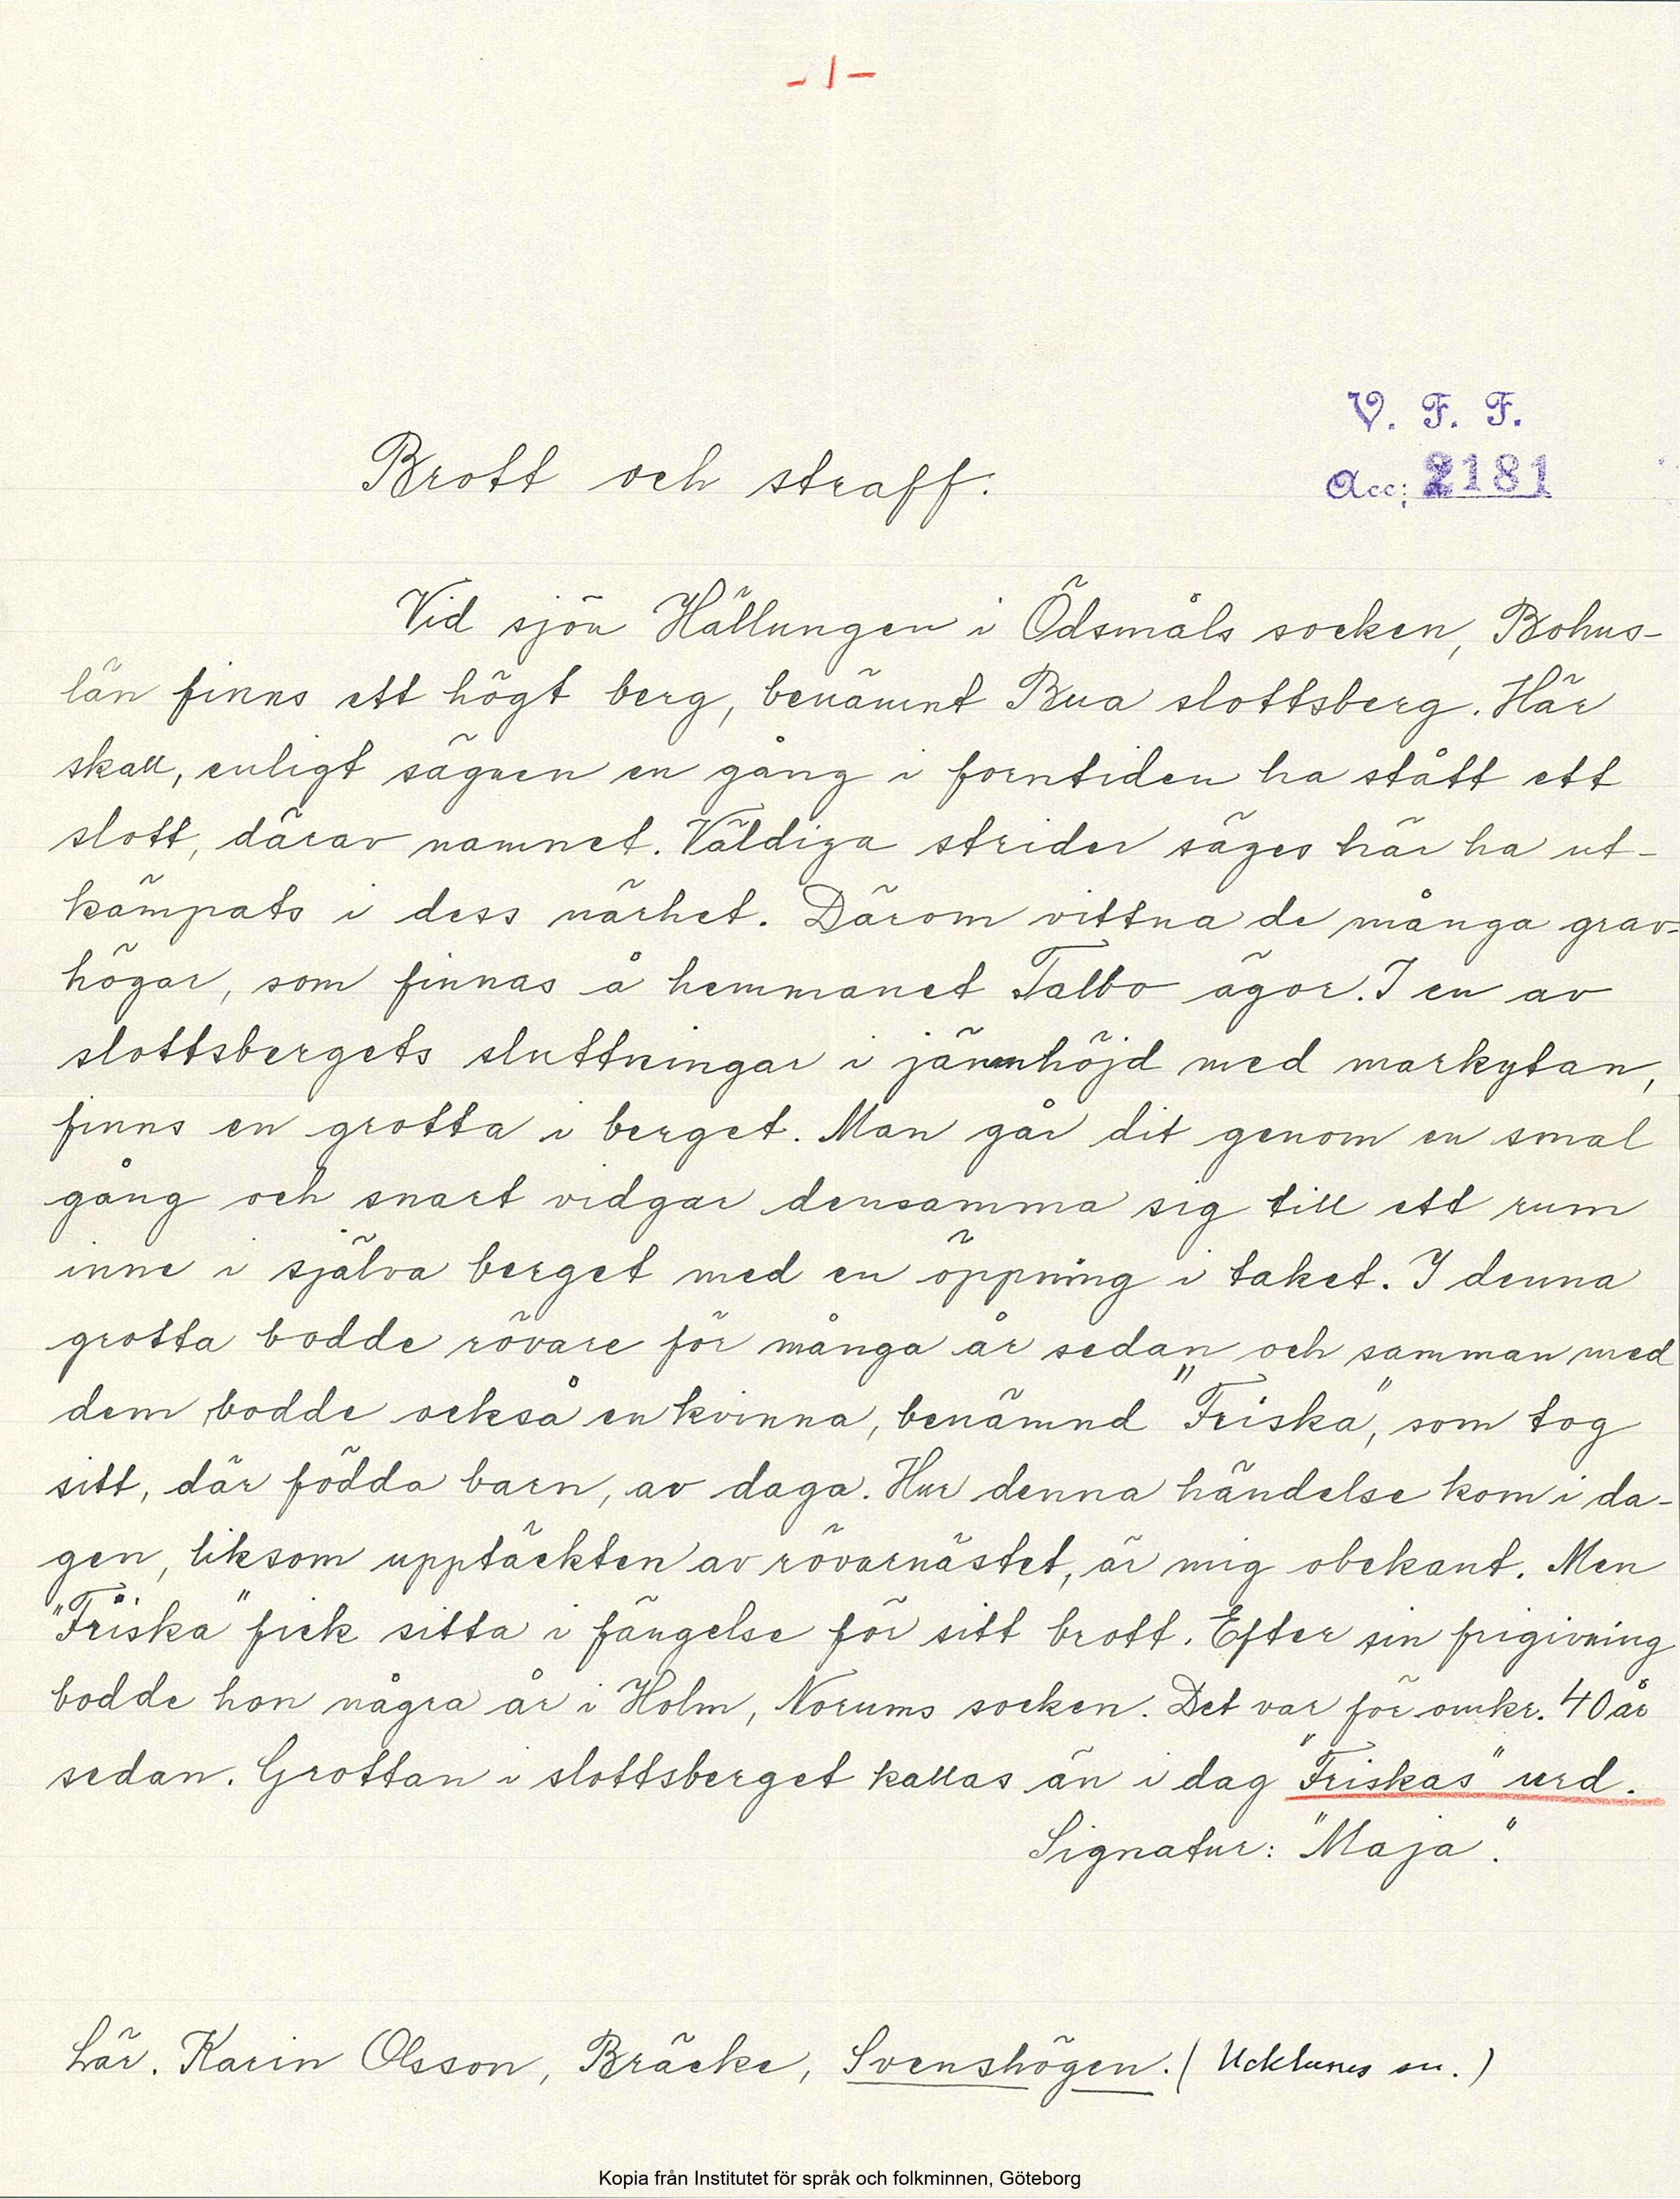 - 1 -
V. F. F.
Brott och straff.
Acc; 2181
Vid sjön Hällungen i Ödsmåls socken, Bohus-
län finns ett högt berg, benämnt Bua slottsberg. Här
skall, enligt sägnen en gång i forntiden ha stått ett
slott, därav namnet. Väldiga strider säges här ha ut-
kämpats i dess närhet. Därom vittna de många grav-
högar, som finnas å hemmanet Talbo ägor. I en av
slottsbergets sluttningar i jämnhöjd med markytan,
finns en grotta i berget. Man går dit genom en smal
gång och snart vidgar densamma sig till ett rum
inne i själva berget med en öppning i taket. I denna
grotta bodde rövare för många år sedan och samman med
dem bodde också en kvinna, benämnd "Friska", som tog
sitt, där födda barn, av daga. Hur denna händelse kom i da-
gen, liksom upptäckten av rövarnästet, är mig obekant. Men
"Friska" fick sitta i fängelse för sitt brott. Efter sin frigivning
bodde hon några år i Holm, Norums socken. Det var för omkr. 40 år
sedan. Grottan i slottsberget kallas än i dag "Friskas" urd.
Signatur: "Maja".
Lär. Karin Olsson, Bräcke, Svenshögen. (Ucklums sn.)
Kopia från Institutet för språk och folkminnen, Göteborg